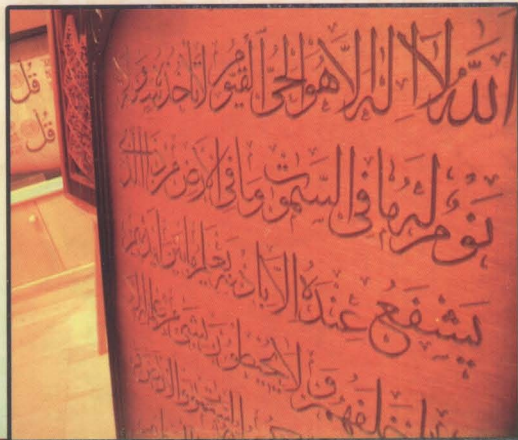 الله لا إله إلا هو الحي القيوم لا تأخذه سنة ولا
نوم له ما في السموت وما في الأرض من ذا الذي
يشفع عنده إلا بإذنه يعلم ما بين أيديهم
وما خلفهم ولا يحيطون بشيء من علمه إلا
قل
قل